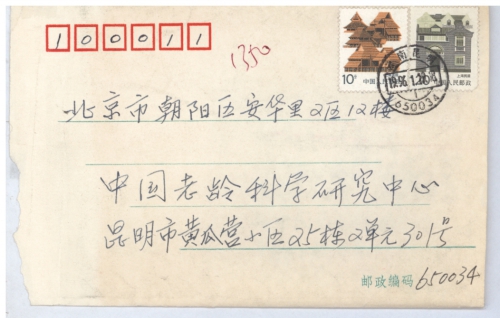 100011
1350
10分
中国人民邮政
1996.1.26
650034
北京市朝阳区安华里2区12楼
中国老龄科学研究中心
昆明市黄瓜营小区25栋2单元301号
邮政编码 650034